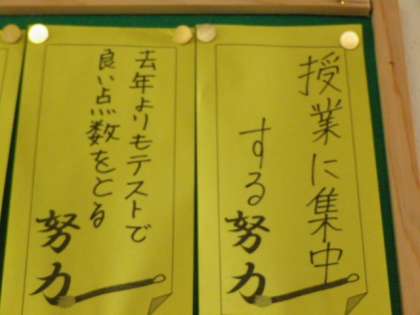 授業に集中
する
努力
去年よりもテストで
良い点数をとる
努力